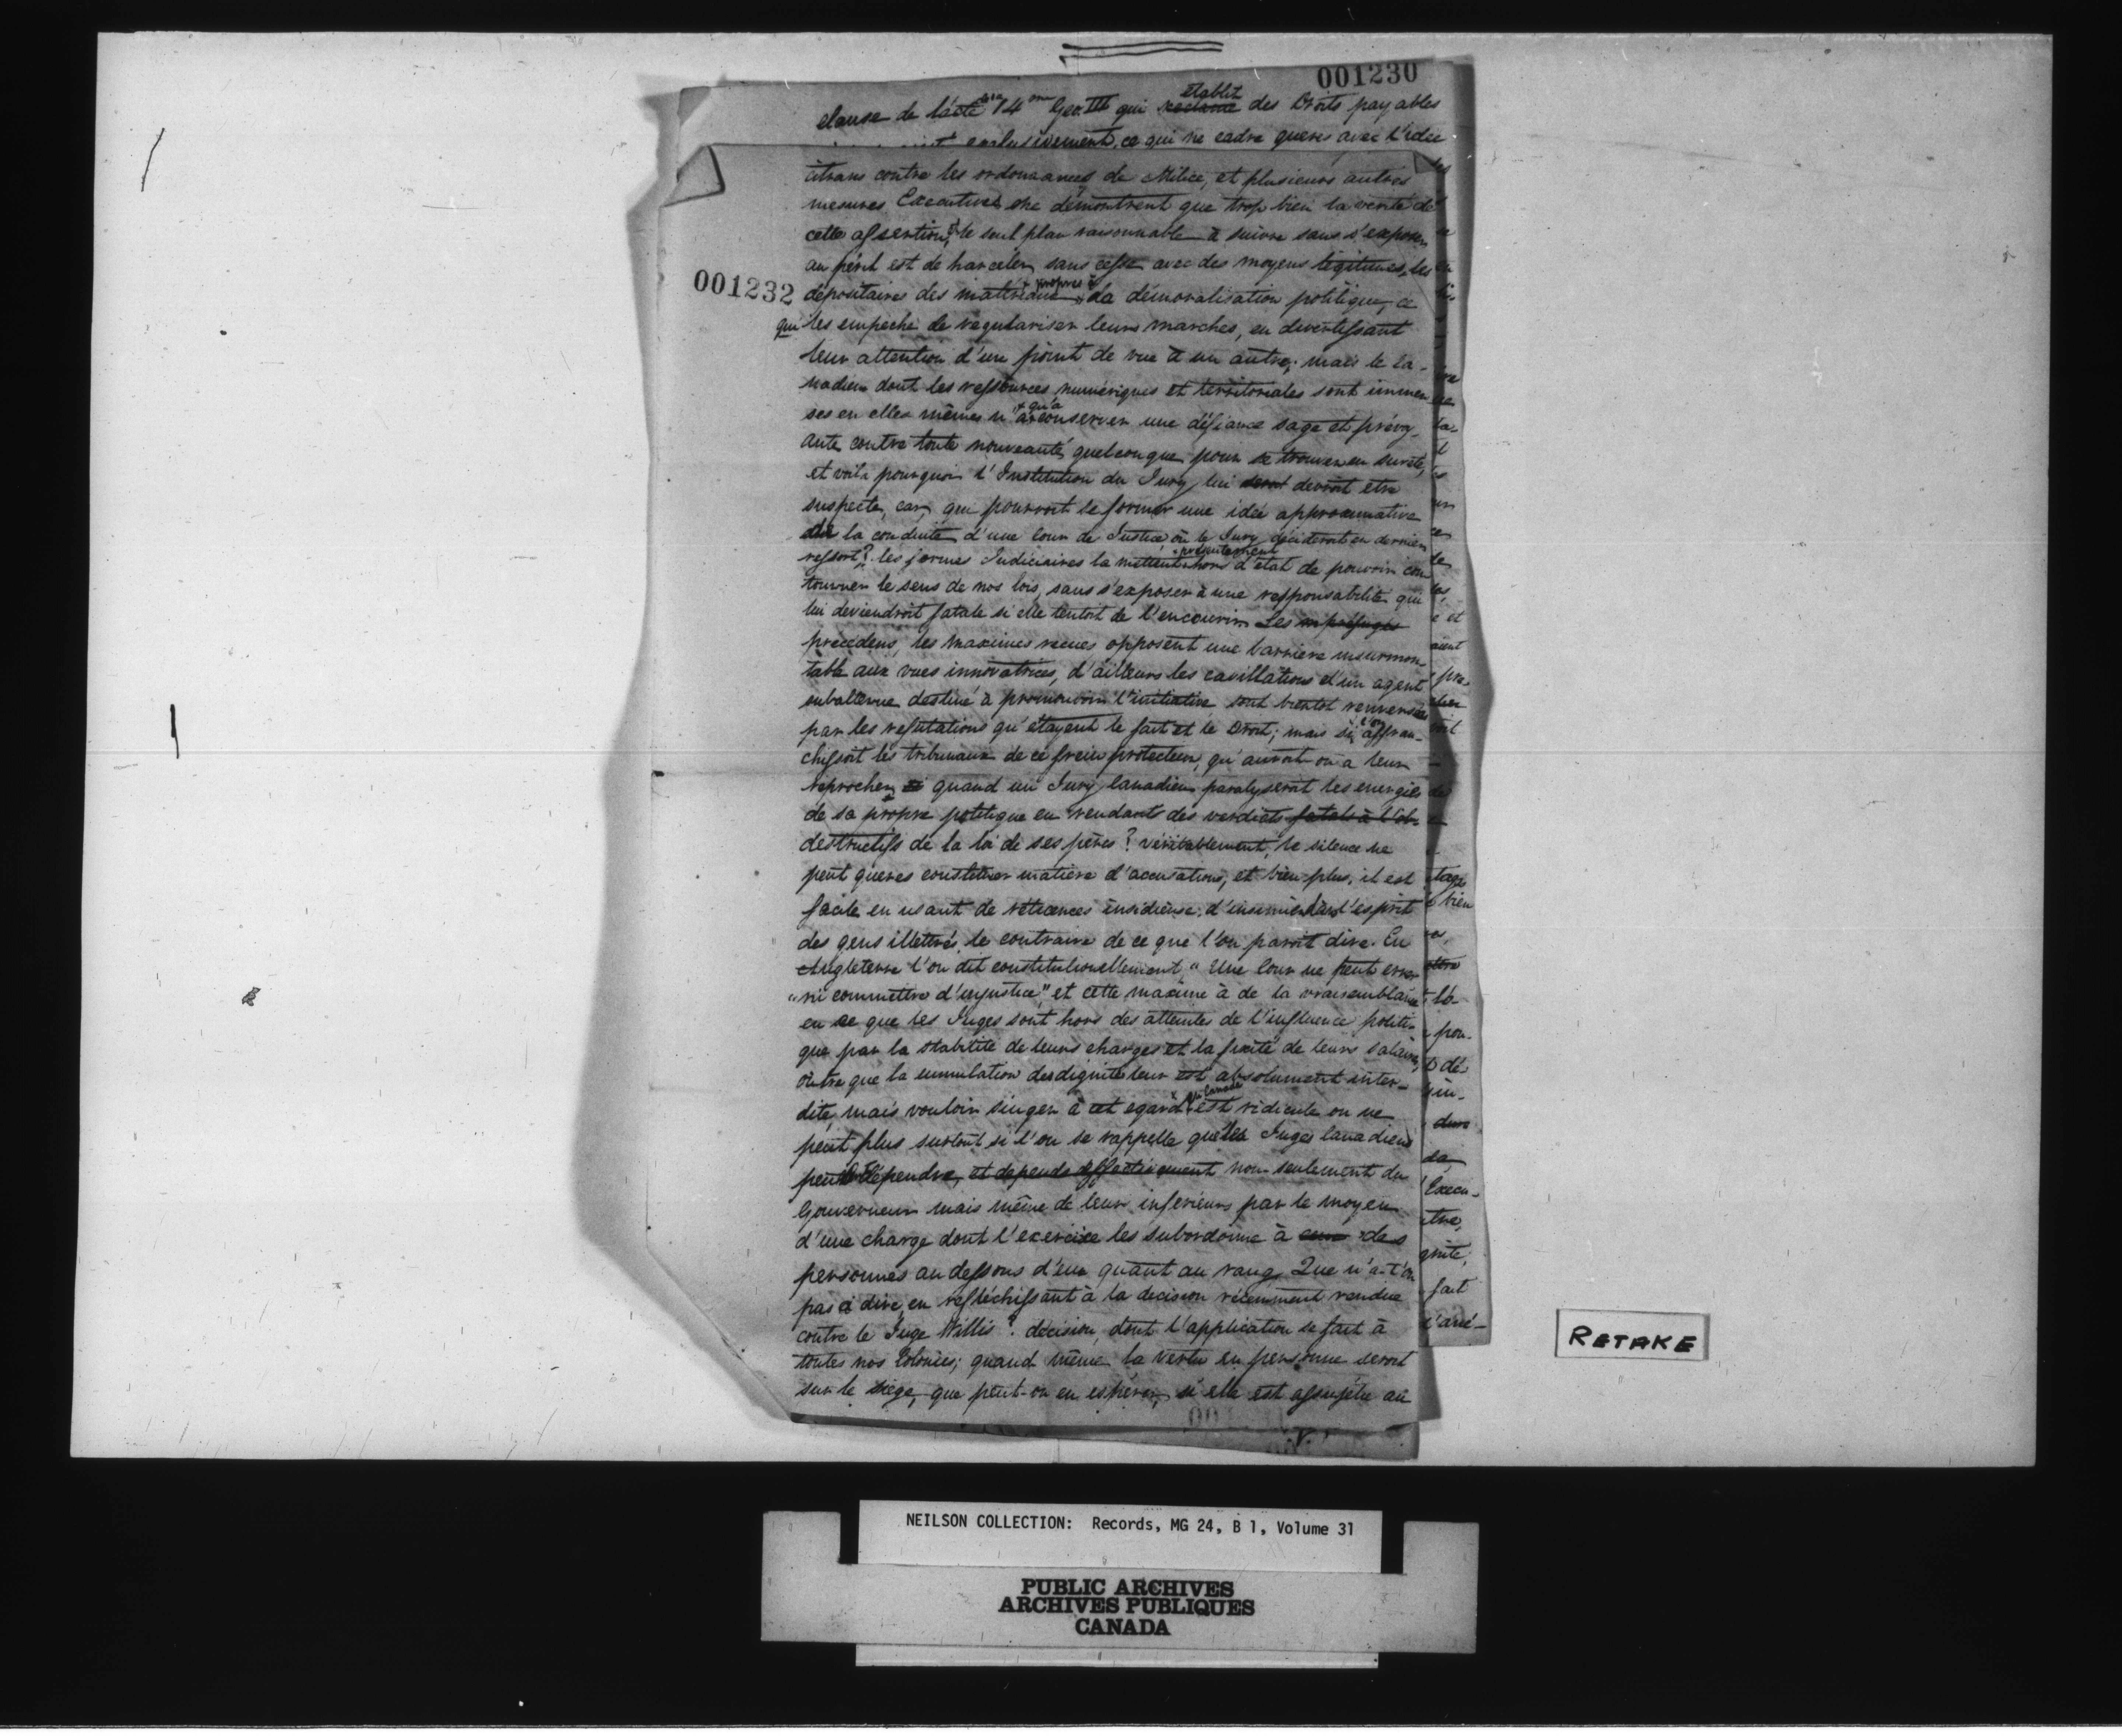 001230
clause de l'acte 14me Geo. III qui reclame établit des Droits payables
exclusivement, ce qui ne cadre queres avec l'idée
001232
citrans contre les ordonnances de Milice, et plusieurs autres
mesures Executives ne démontrent que trop bien la verité de
cette assertion, le seul plan raisonnable à suivre sans s'exposer
au péril est de harceler sans cesse avec des moyens légitimes, les
dépositaires des propres à la démoralisation politique, ce
qui les empeche de regulariser leurs marches, en divertissant
leur attention d'un point de vue à un autre; mais le Ca-
nadien dont les ressources numériques et territoriales sont immen
ses en elles mêmes n'a qu'a conserver une défiance sage et prévoy-
ante contre toute nouveauté quelconque pour se trouver en sureté,
et voilà pourquoi l'Institution du Jury lui devroit etre
suspecte, car, qui pourroit se former une idée approximative
de la conduite d'une Cour de Justice où le Jury décideroit en dernier
ressort? les formes Judiciaires la mettent présentement hors d'état de pouvoir con
tourner le sens de nos lois, sans s'exposer à une responsabilité qui
lui deviendroit fatale si elle tentoit de l'encourir. Les préjugés
precedens, les maximes recues opposent une barriere insurmon-
table aux vues innovatrices, d'ailleurs les cavillations d'un agent
subalterne destiné à promouvoir l'initiative sont bientot renversées
par les refutations qu'étayent le fait et le Droit; mais si l'on affran-
chissoit les tribunaux de ce frein protecteur, qu'auroit-on a leur
reprocher si quand un Jury Canadien paralyseroit les energies
de sa propre politique en rendant des verdicts fatals à l'ob-
destructifs de la loi de ses pères? véritablement, le silence ne
peut queres constituer matière d'accusations, et bien plus, il est
facile en usant de réticences insidieuse, d'insinuer dans l'esprit
des gens illettrés le contraire de ce que l'on paroit dire. En
Angleterre l'on dit constitutionellement, "Une Cour ne peut errer
"ni commettre d'injustice," et cette maxime à de la vraisemblance
en ce que les Juges sont hors des atteintes de l'influence politi-
que par la stabilité de leurs charges et la fixité de leurs salaires,
outre que la cumulation des dignités leur est absolument inter-
dite, mais vouloir singer à cet egard en Canada est ridicule on ne
peut plus surtout si l'on se rappelle que les Juges Canadiens
peut dépendre, et depends effectivement non seulement du
Gouverneur mais même de leur inferieurs par le moyen
d'une charge dont l'exercice les subordonne à eux des
personnes au dessous d'eux quant au rang. Que n'a-t'on
pas à dire, en reflechissant à la decision récemment rendue
contre le Juge Willis? decision, dont l'application se fait à
toutes nos Colonies; quand même la vertu en personne seroit
sur le siege, que peut-on en espérer, si elle est assujétie au
RETAKE
NEILSON COLLECTION: Records, MG 24, B 1, Volume 31
PUBLIC ARCHIVES
ARCHIVES PUBLIQUES
CANADA